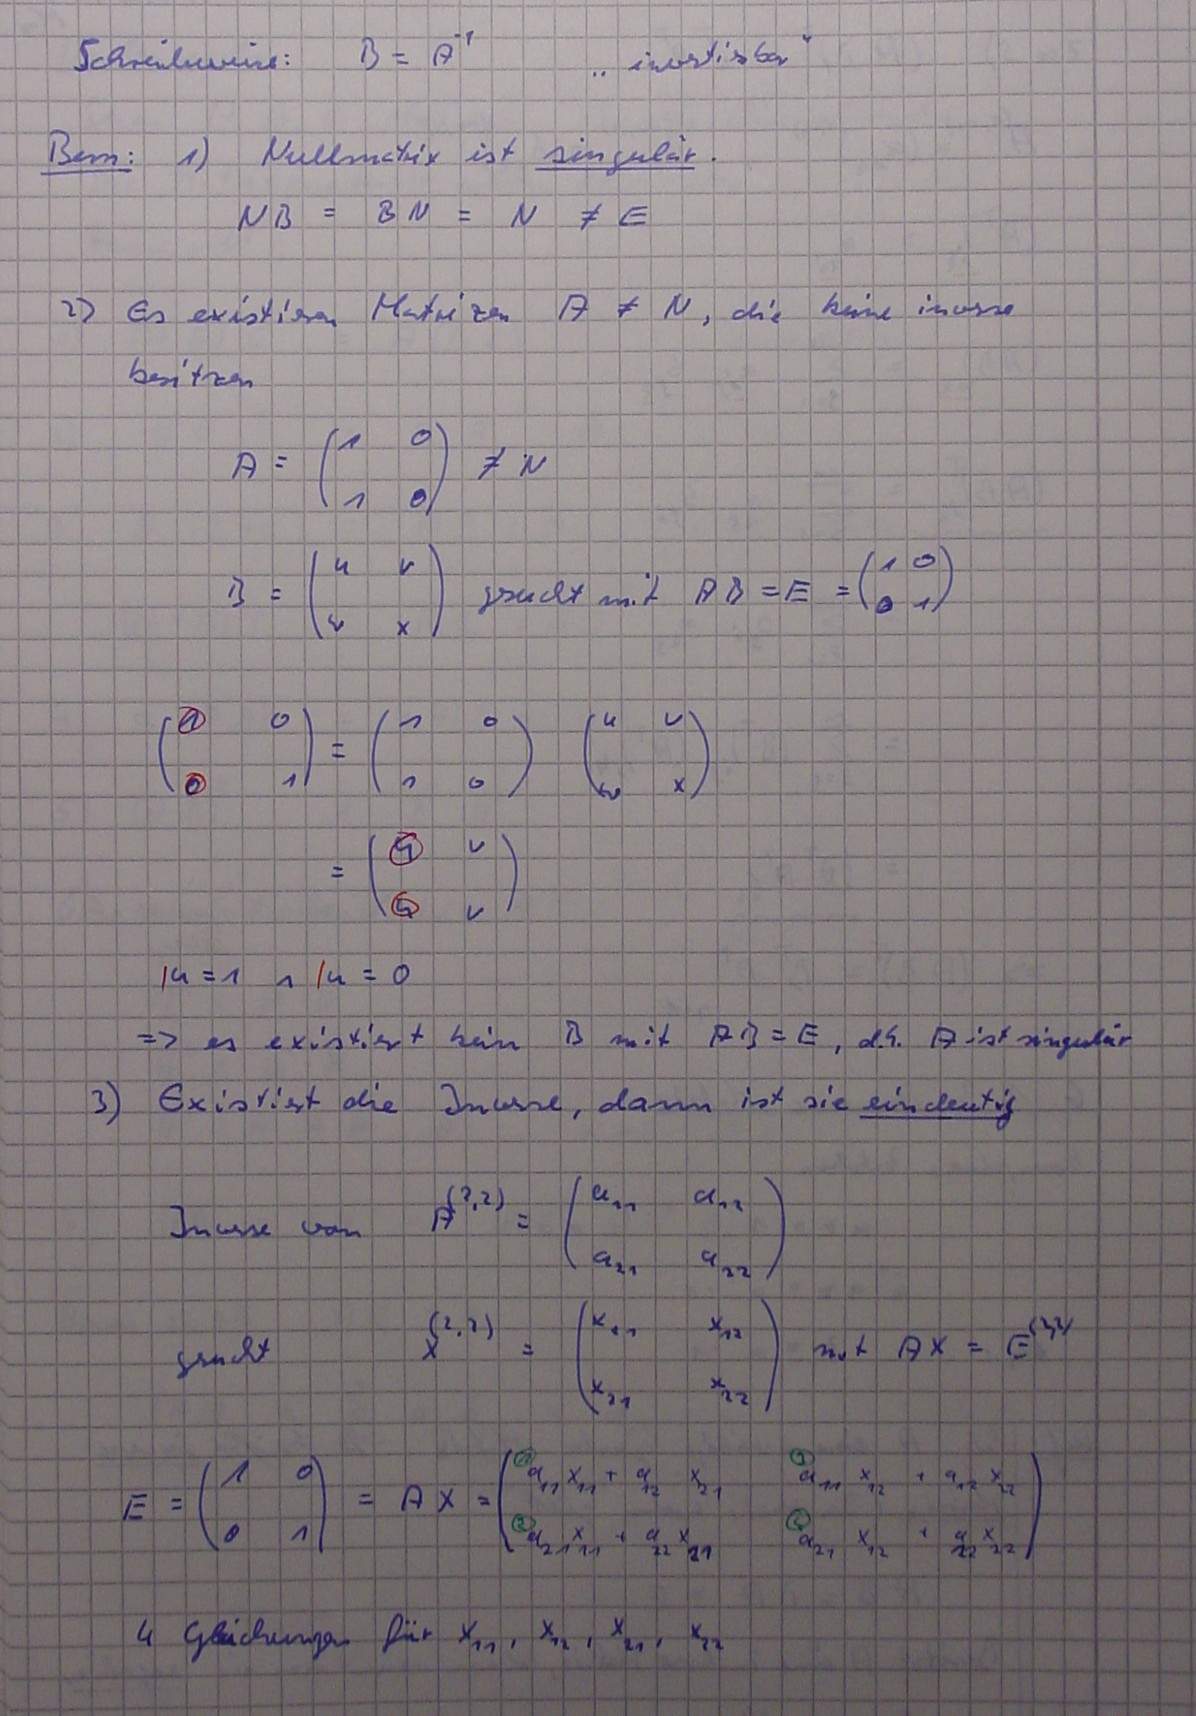 Schreibweise: B = A⁻¹ „invertierbar"
Bem: 1) Nullmatrix ist singulär.
NB = BN = N ≠ E
2) Es existieren Matrizen A ≠ N, die keine inverse
besitzen
A = (1 0; 1 0) ≠ N
B = (u v; w x) gesucht mit AB = E = (1 0; 0 1)
(1 0; 0 1) = (1 0; 1 0) (u v; w x)
= (u v; u v)
u = 1 ∧ u = 0
=> es existiert kein B mit AB = E, d.h. A ist singulär
3) Existiert die Inverse, dann ist sie eindeutig
Inverse von A^(2,2) = (a₁₁ a₁₂; a₂₁ a₂₂)
gesucht X^(2,2) = (x₁₁ x₁₂; x₂₁ x₂₂) mit AX = E^(2,2)
E = (1 0; 0 1) = AX = (a₁₁x₁₁ + a₁₂x₂₁ a₁₁x₁₂ + a₁₂x₂₂; a₂₁x₁₁ + a₂₂x₂₁ a₂₁x₁₂ + a₂₂x₂₂)
4 Gleichungen für x₁₁, x₁₂, x₂₁, x₂₂